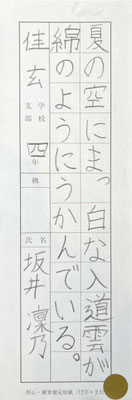 夏の空にまっ白な入道雲が
綿のようにうかんでいる。
佳玄 学校 支部 四年 級 氏名 坂井凜乃
初心・硬筆規定用紙